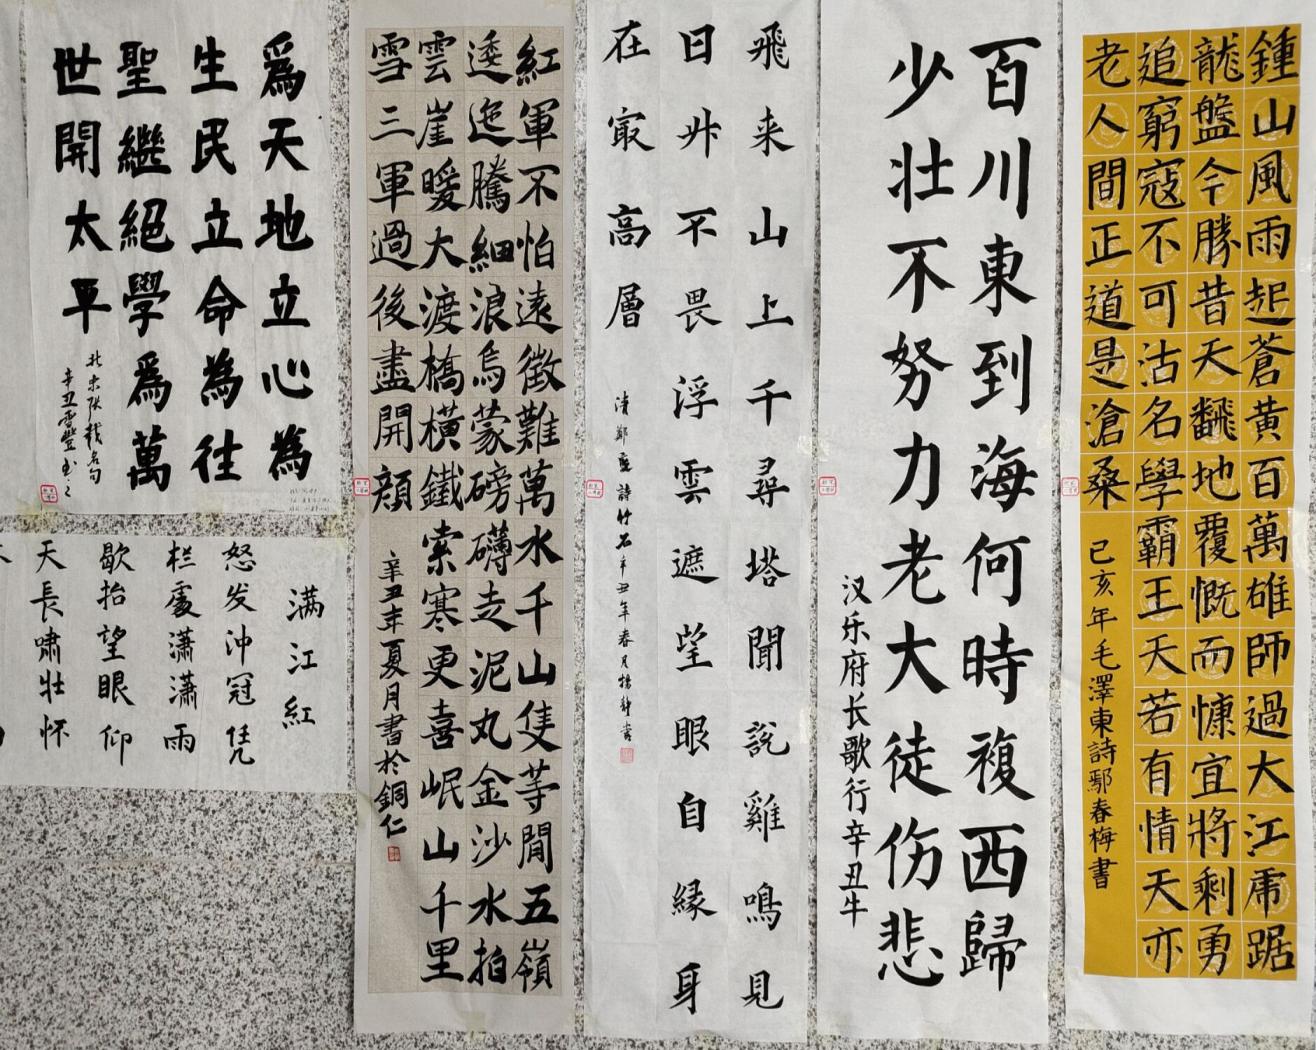 鍾山風雨起蒼黄百萬雄師過大江虎踞
龍盤今勝昔天翻地覆慨而慷宜將剩勇
追窮寇不可沽名學霸王天若有情天亦
老人間正道是滄桑
己亥年毛澤東詩鄢春梅書
百川東到海何時複西歸
少壮不努力老大徒伤悲
汉乐府长歌行辛丑牛
飛来山上千尋塔聞説雞鳴見
日升不畏浮雲遮望眼自緣身
在最高層
清鄭燮詩竹石辛丑年春月楊静書
紅軍不怕遠徵難萬水千山隻等閒五嶺
逶迤騰細浪烏蒙磅礴走泥丸金沙水拍
雲崖暖大渡橋橫鐵索寒更喜岷山千里
雪三軍過後盡開顔
辛丑年夏月書於銅仁
爲天地立心為
生民立命為往
聖繼絕學爲萬
世開太平
北宋张载名句
辛丑雲豐
满江紅
怒发沖冠凭
栏處潇潇雨
歇抬望眼仰
天長啸壮怀